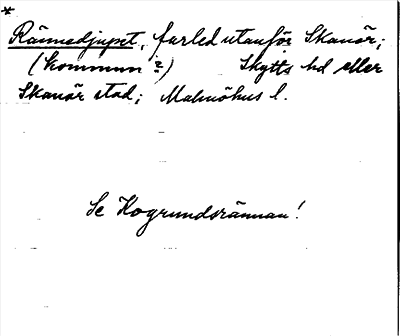 *
Rännedjupet, farled utanför Skanör;
(kommun?) Skytts hd eller
Skanör stad; Malmöhus l.
Se Kogrundsrännan!